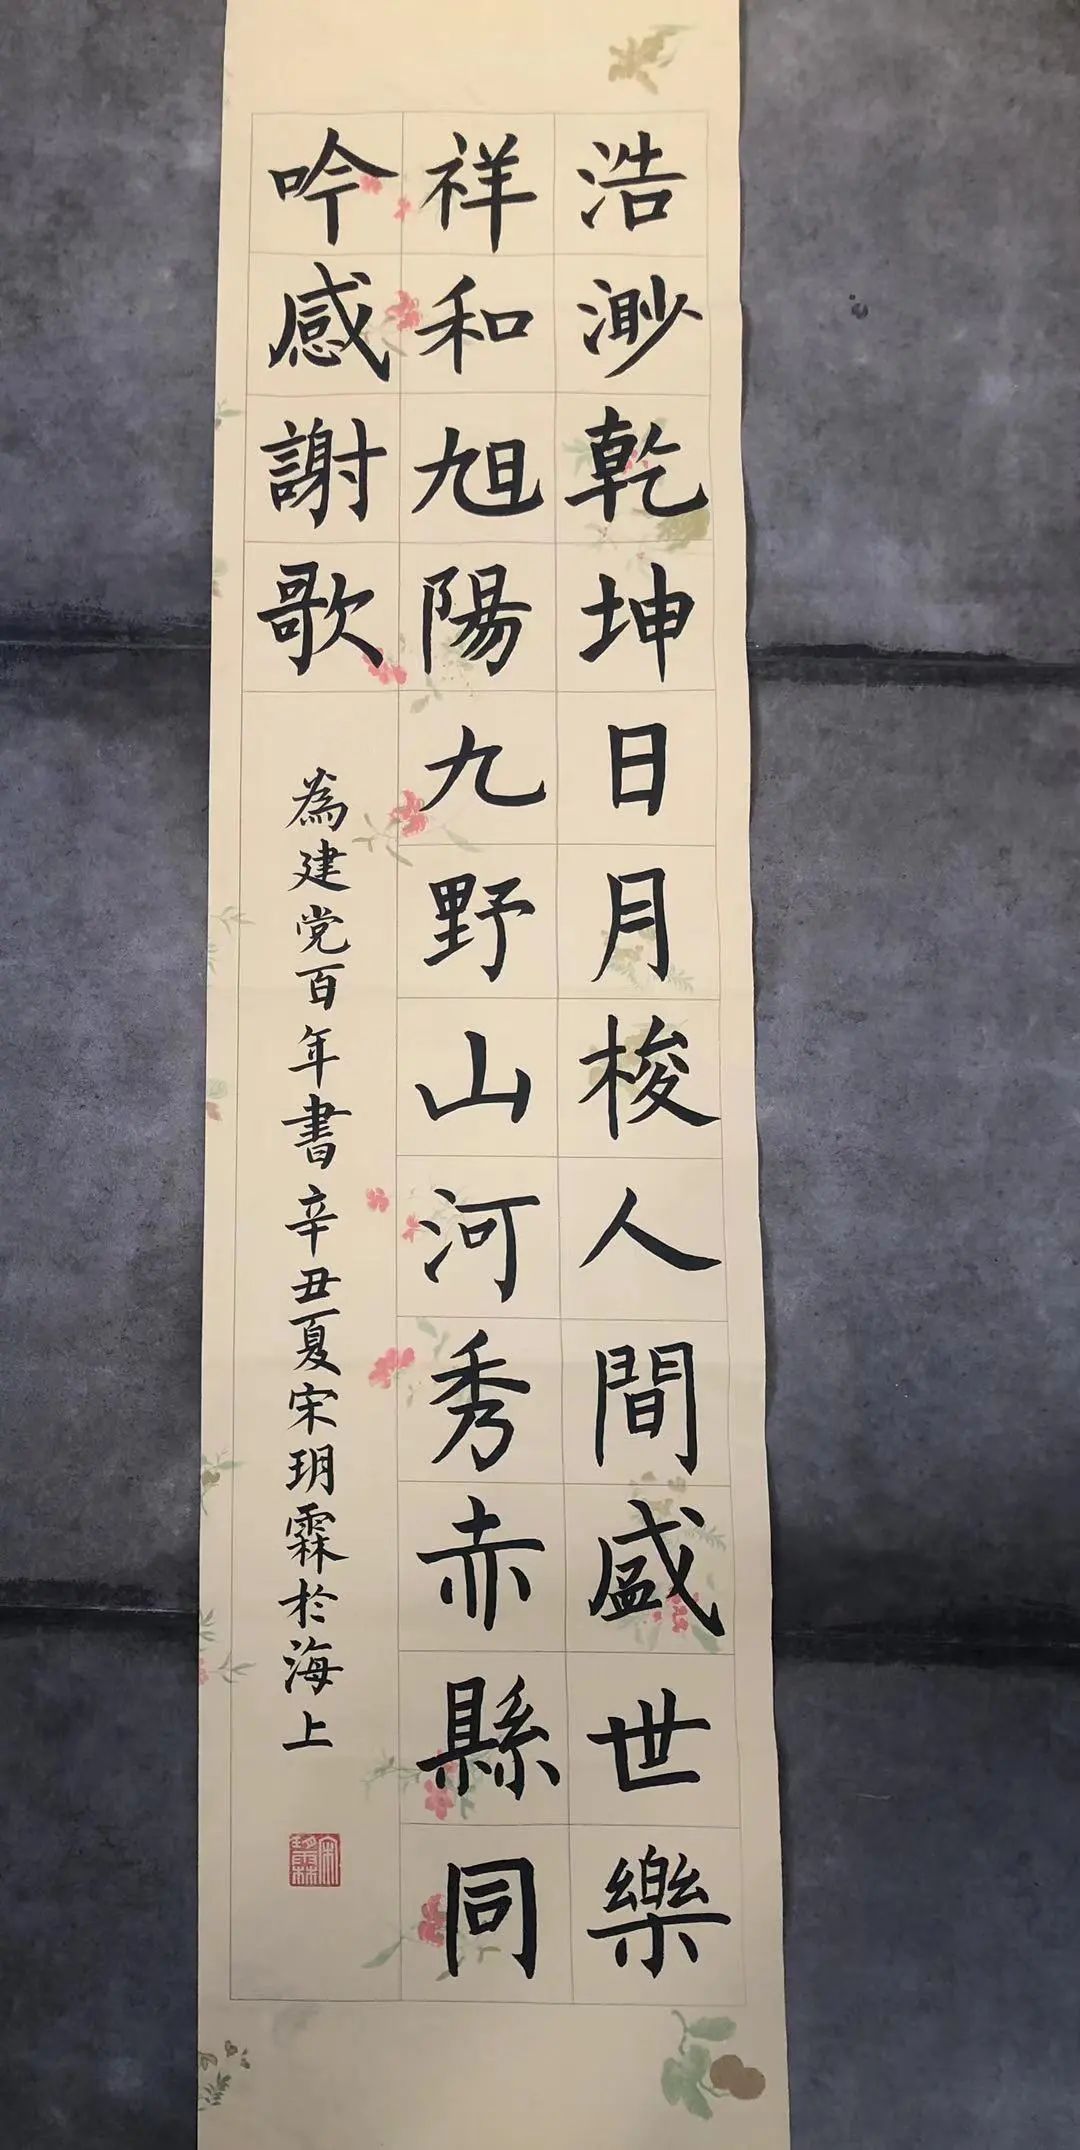 浩渺乾坤日月梭人間盛世樂
祥和旭陽九野山河秀赤縣同
吟感謝歌
為建党百年書辛丑夏宋玥霖於海上
宋玥霖